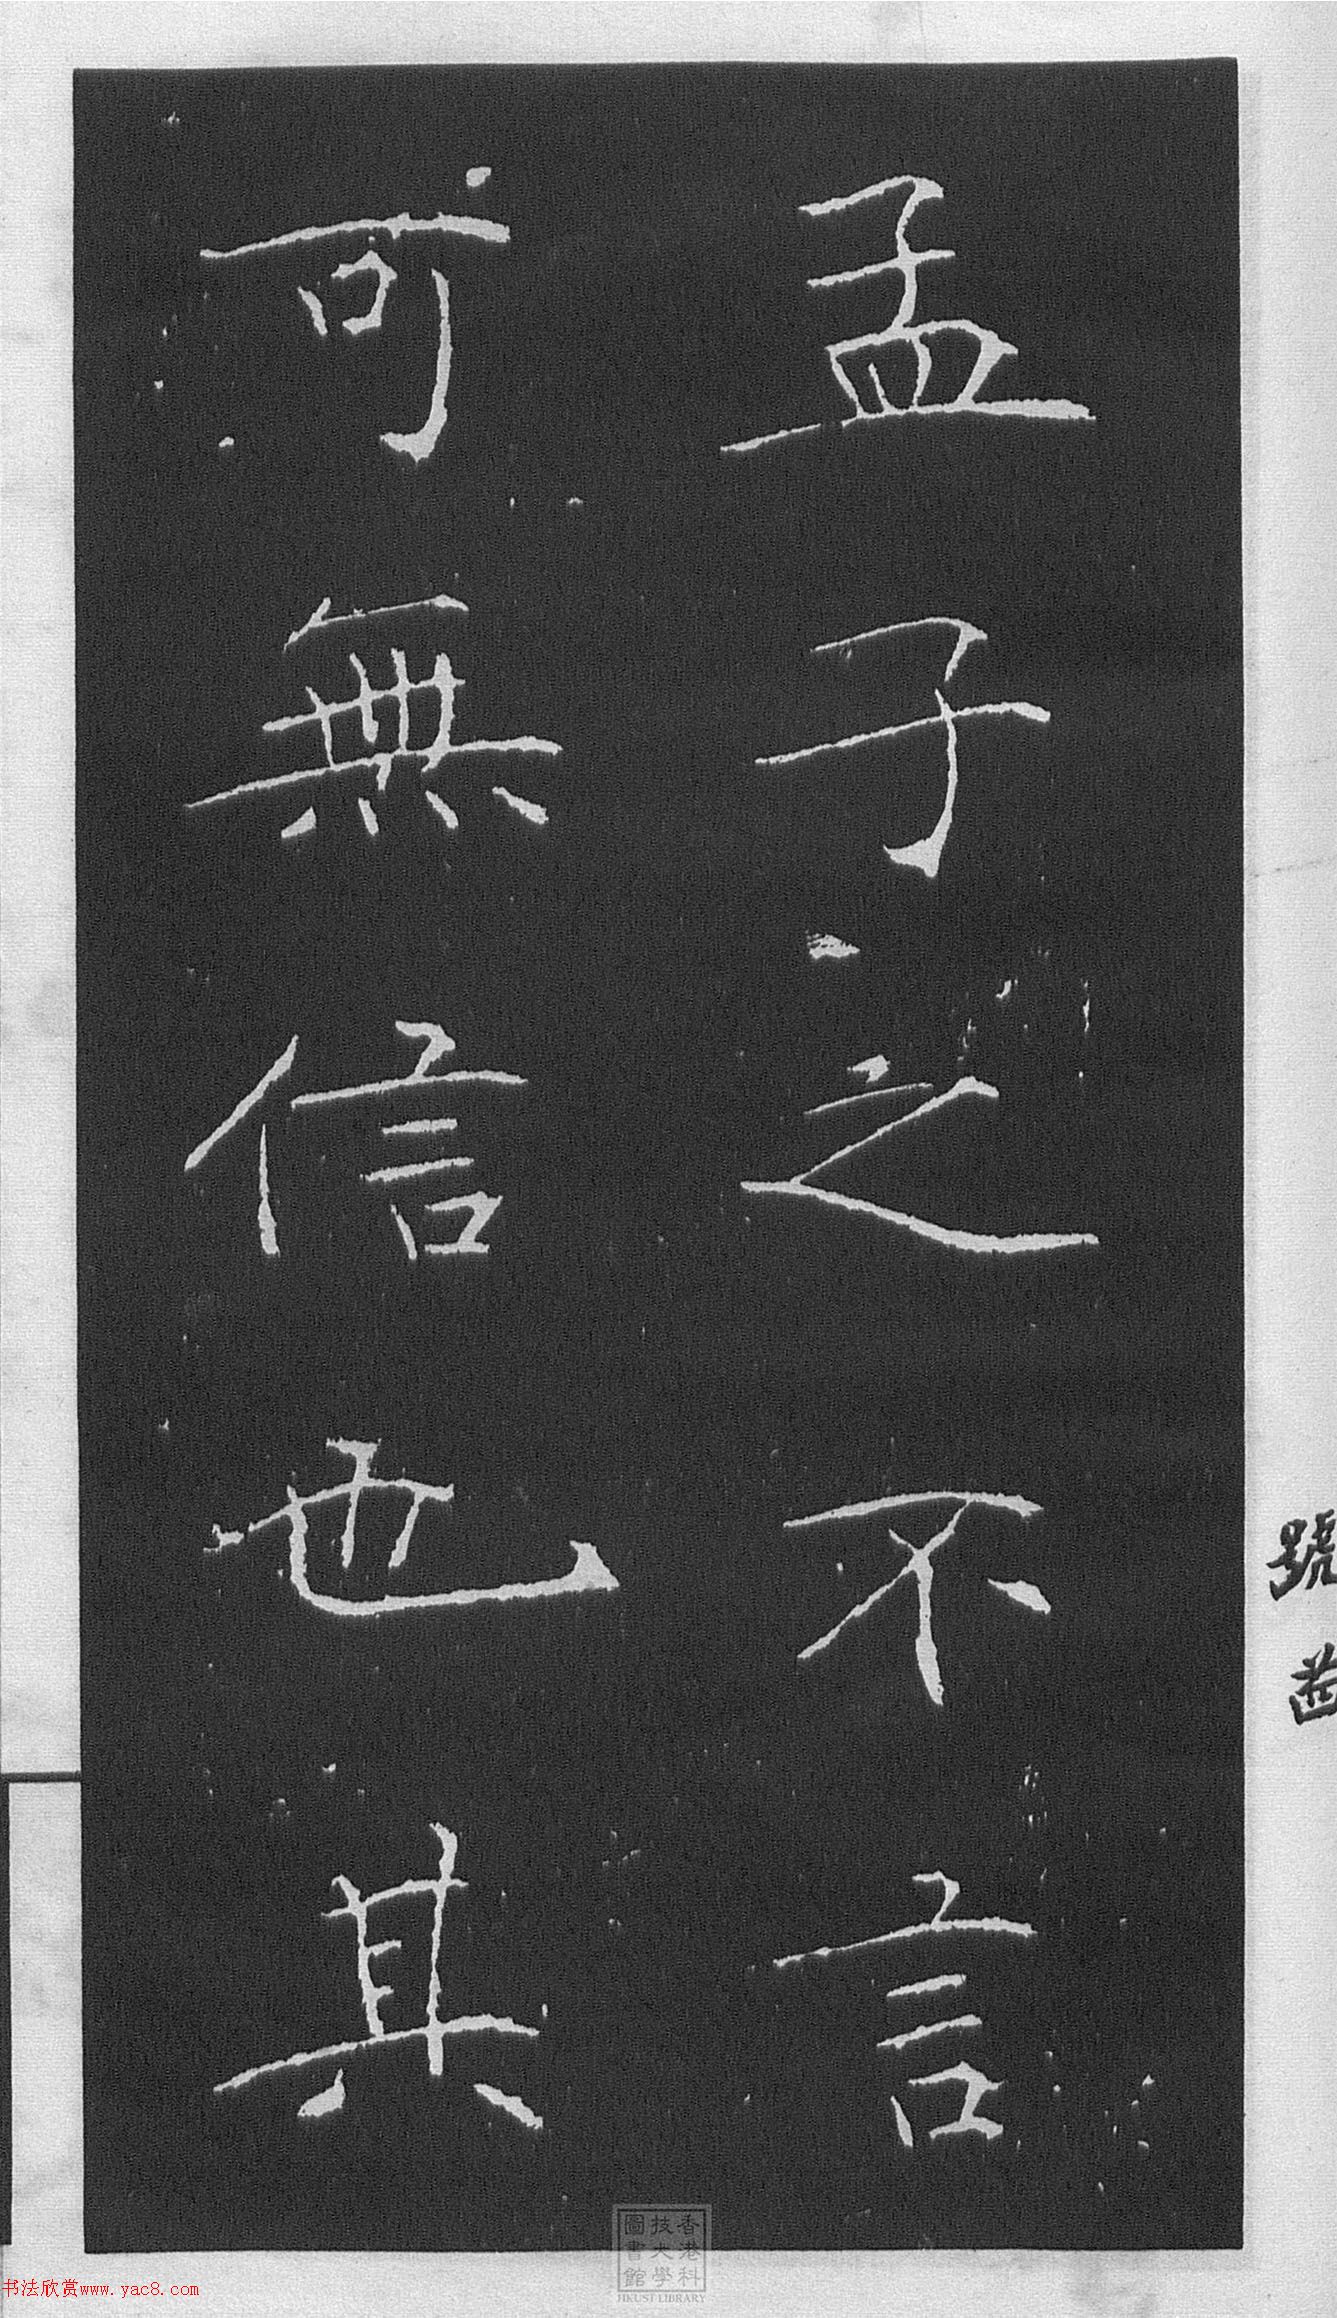 孟子之不言
可無信也其
號
香港
科技大學
圖書館
HKUST LIBRARY
书法欣赏www.yac8.com